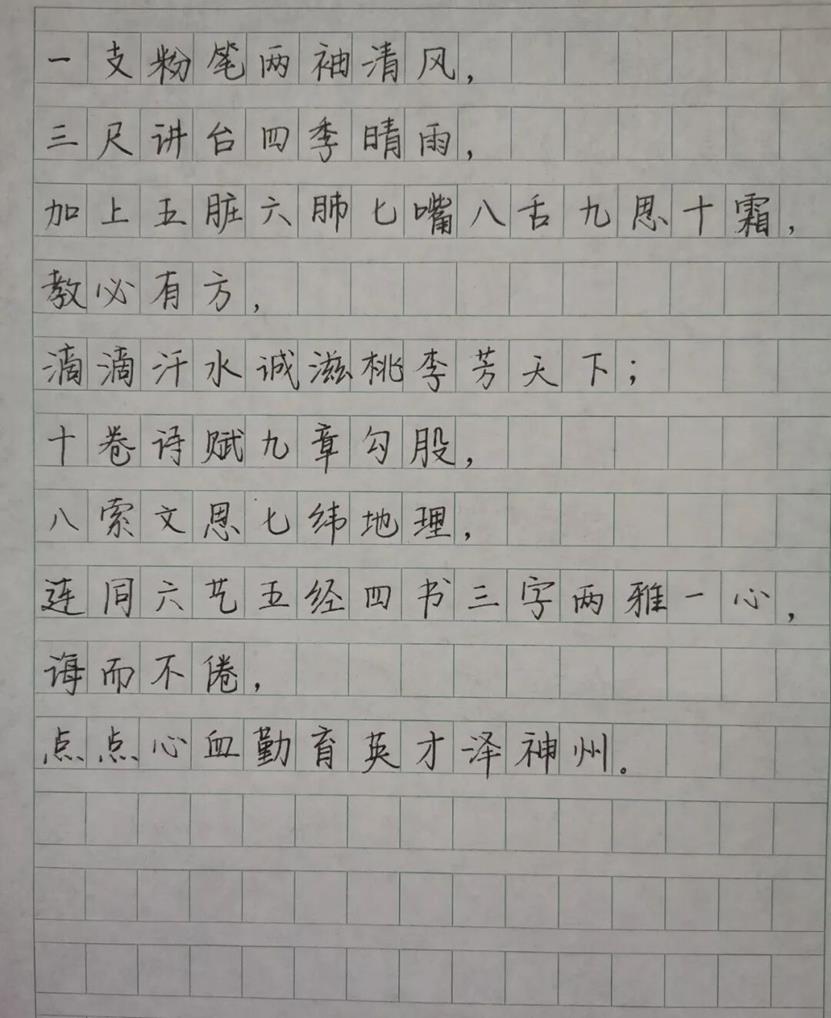 一支粉笔两袖清风，
三尺讲台四季晴雨，
加上五脏六肺七嘴八舌九思十霜，
教必有方，
滴滴汗水诚滋桃李芳天下；
十卷诗赋九章勾股，
八索文思七纬地理，
连同六艺五经四书三字两雅一心，
诲而不倦，
点点心血勤育英才泽神州。